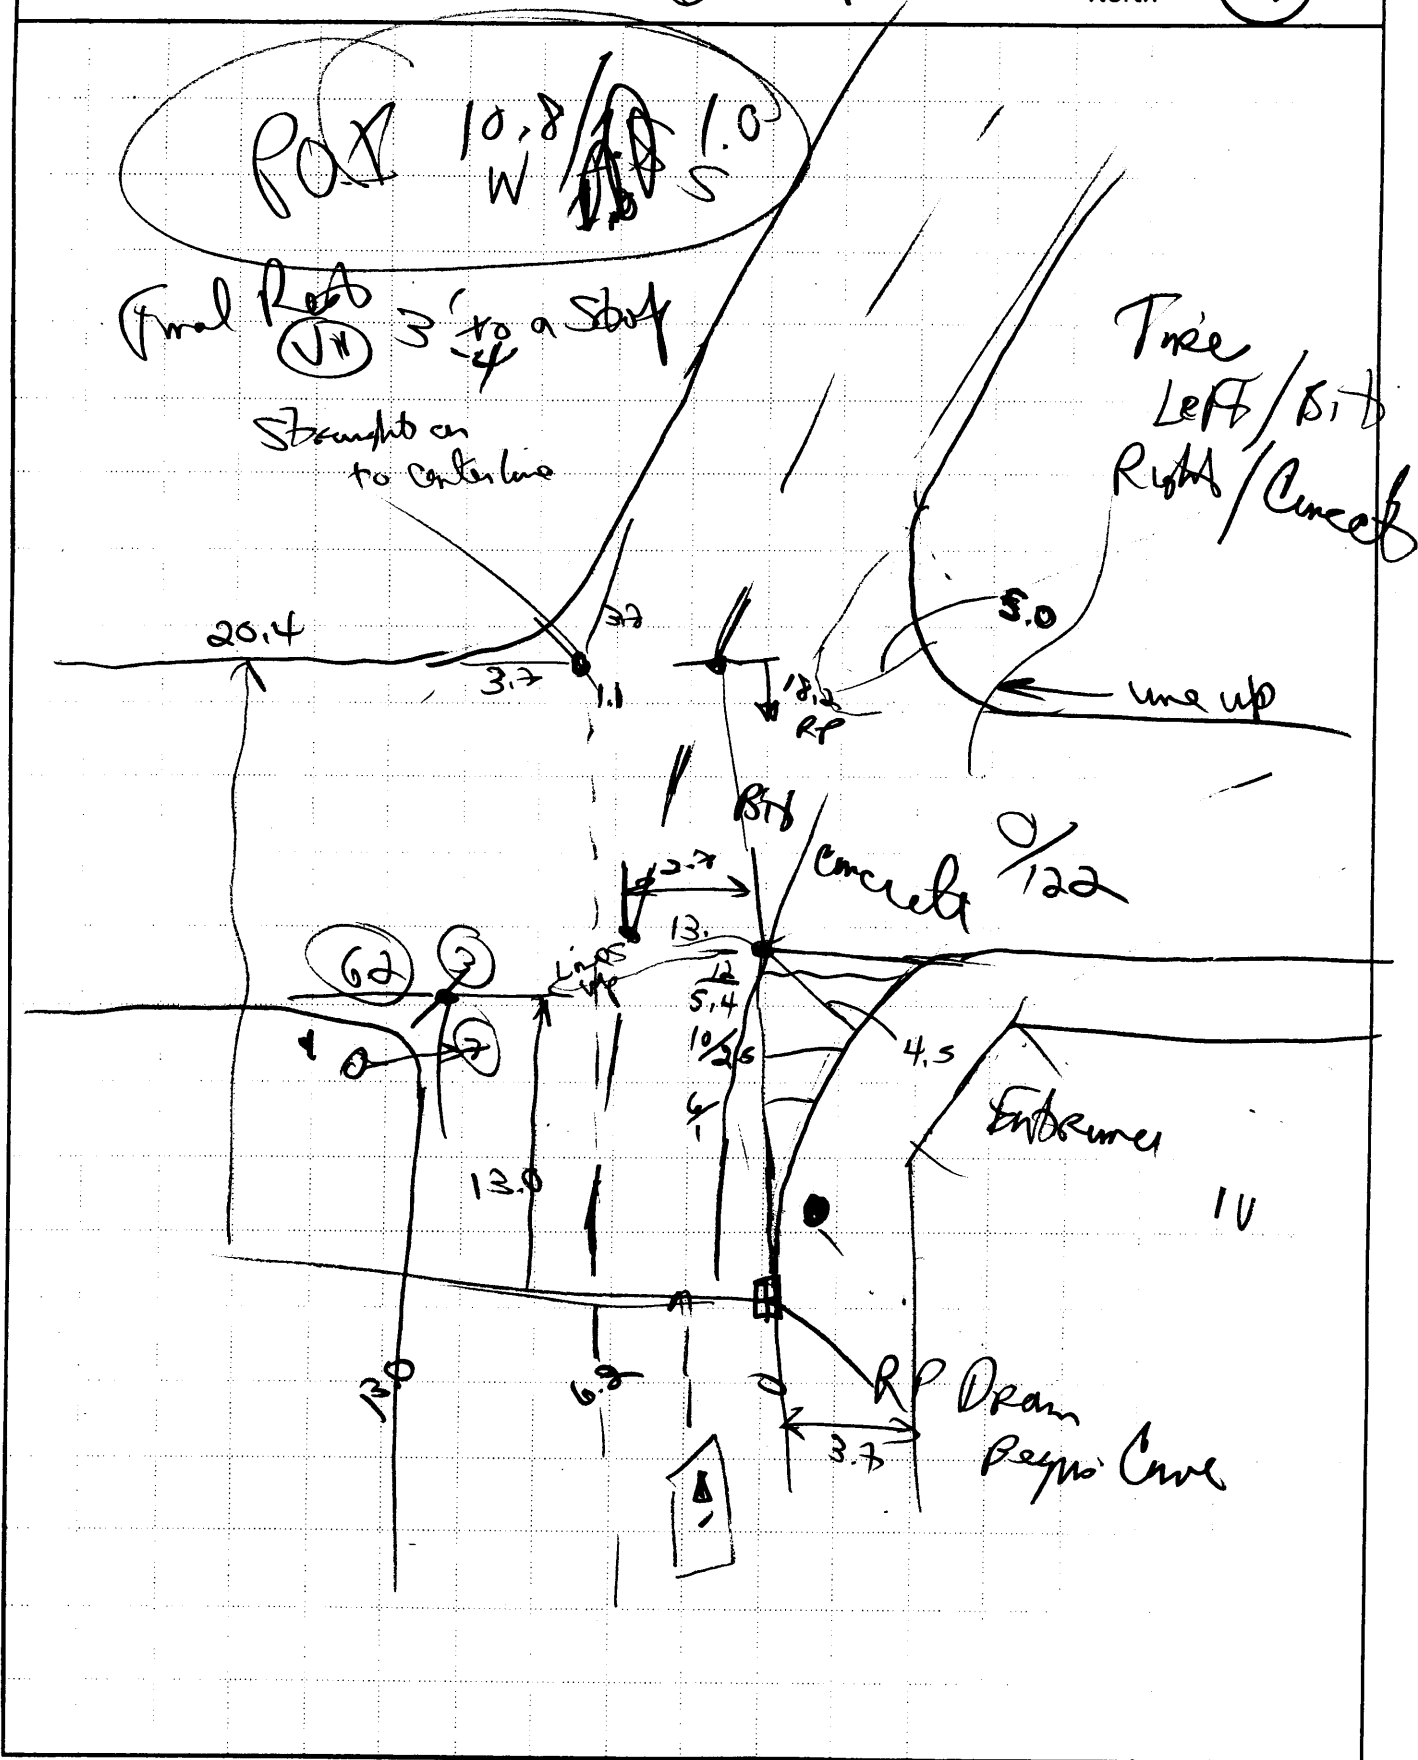 North
POI 10.8/ 1.0
W S
Final Rest
3' to a Stop
-4
Straight on
to centerline
Tire
Left/Bit
Right/Concrete
20.4
3.7
3.7
1.1
18.2
RP
5.0
Line up
Bit
2.7
Concrete
0/122
13.
62
3
Lines
up
12
5.4
10/2.5
4.5
7
6/1
Entrance
13.0
10
13.0
6.2
0
RP Drain
Begins Curve
3.7